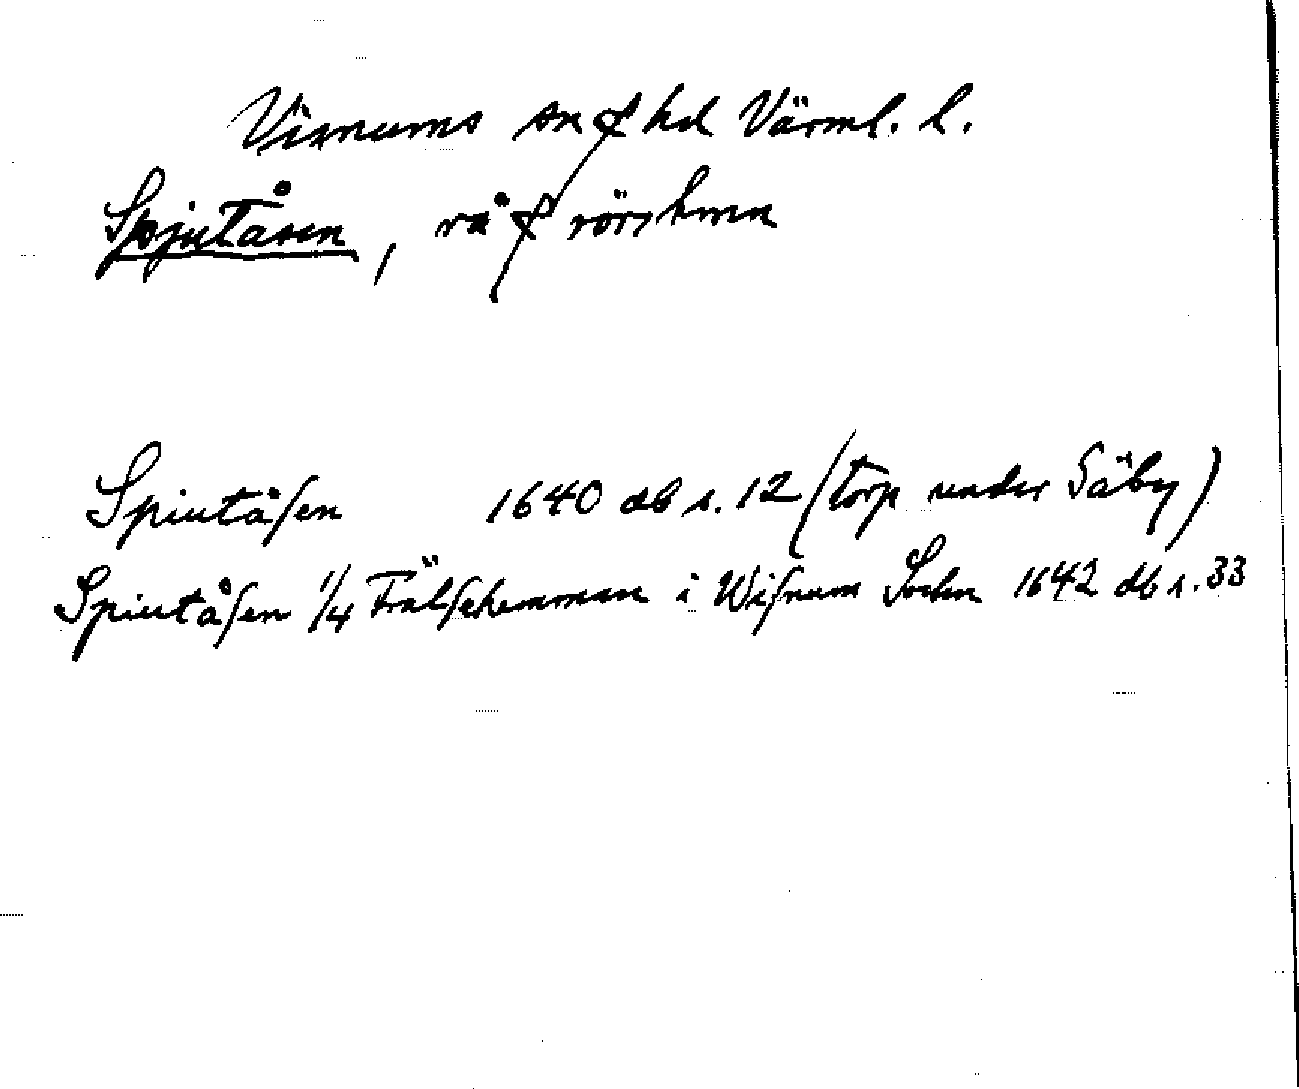 Visnums sn & hd Värml. l.
Spjutåsen, rå & rörshmn
Spiutåſen 1640 db s. 12 (torp under Säby)
Spiutåſen 1/4 Frälſehemman i Wiſnum Sochn 1642 db s. 33